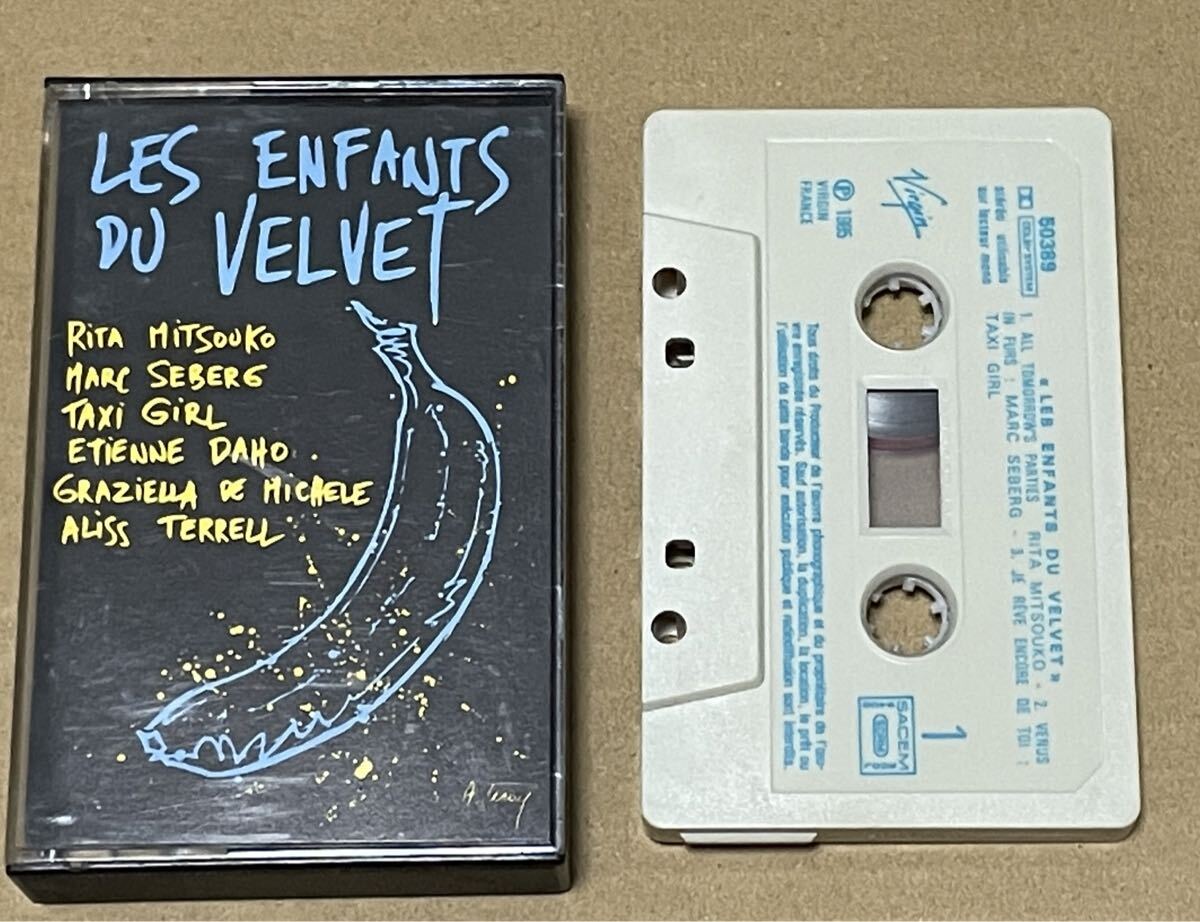 LES ENFANTS
DU VELVET
RITA MITSOUKO
MARC SEBERG
TAXI GIRL
ETIENNE DAHO
GRAZIELLA DE MICHELE
ALISS TERRELL
50389
DOLBY SYSTEM
stéréo utilisable
sur lecteur mono
« LES ENFANTS DU VELVET »
1. ALL TOMORROW'S PARTIES RITA MITSOUKO - 2. VENUS
IN FURS : MARC SEBERG - 3. JE RÊVE ENCORE DE TOI :
TAXI GIRL
Virgin
Ⓟ 1985
VIRGIN
FRANCE
1
SACEM
Tous droits du Producteur de l'œuvre phonographique et du propriétaire de l'œu-
vre enregistrée réservés. Sauf autorisation, la duplication, la location, le prêt ou
l'utilisation de cette bande pour exécution publique et radiodiffusion sont interdits.